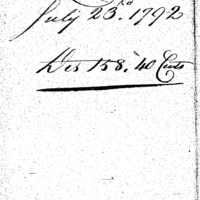 July 23.rd 1792
Drs 158. 40 Cents